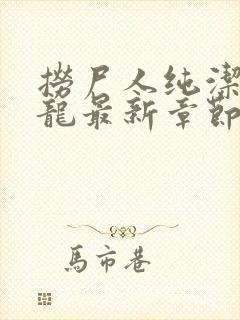 撈尸人纯潔
龍最新章節
馬市巷